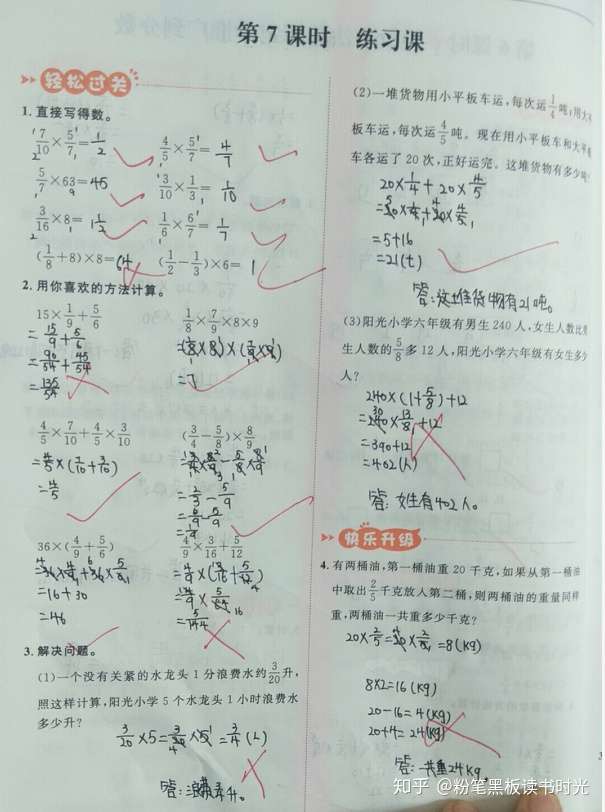 第7课时 练习课
轻松过关
1. 直接写得数。
7/10 × 5/7 = 1/2
4/5 × 5/7 = 4/7
5/7 × 63 = 45
3/10 × 1/3 = 1/10
3/16 × 8 = 1 1/2
1/6 × 6/7 = 1/7
(1/8 + 8) × 8 = 64
(1/2 − 1/3) × 6 = 1
2. 用你喜欢的方法计算。
15 × 1/9 + 5/6
= 15/9 + 5/6
= 90/54 + 45/54
= 135/54
1/8 × 7/9 × 8 × 9
= (1/8 × 8) × (7/9 × 9)
= 7
4/5 × 7/10 + 4/5 × 3/10
= 4/5 × (7/10 + 3/10)
= 4/5
(3/4 − 5/8) × 8/9
= 3/4 × 8/9 − 5/8 × 8/9
= 2/3 − 5/9
= 6/9 − 5/9
= 1/9
36 × (4/9 + 5/6)
= 36 × 4/9 + 36 × 5/6
= 16 + 30
= 46
4/9 × 3/16 + 5/12
3. 解决问题。
(1) 一个没有关紧的水龙头1分浪费水约3/20升,
照这样计算,阳光小学5个水龙头1小时浪费水
多少升?
3/20 × 5 = 3/20 × 5 = 3/4 (L)
(2) 一堆货物用小平板车运,每次运1/4吨;用大
板车运,每次运4/5吨。现在用小平板车和大平
车各运了20次,正好运完。这堆货物有多少吨
20 × 1/4 + 20 × 4/5
= 20 × 1/4 + 20 × 4/5
= 5 + 16
= 21(t)
答:这堆货物有21吨。
(3) 阳光小学六年级有男生240人,女生人数比
生人数的5/8多12人,阳光小学六年级有女生多少
人?
240 × (1 + 5/8) + 12
= 240 × 13/8 + 12
= 390 + 12
= 402(人)
答:女生有402人。
快乐升级
4. 有两桶油,第一桶油重20千克,如果从第一桶油
中取出2/5千克放入第二桶,则两桶油的重量同样
重,两桶油一共重多少千克?
20 × 2/5 = 20 × 2/5 = 8(kg)
8×2=16(kg)
20−16=4(kg)
20+4=24(kg)
答:一共重24kg。
知乎 @粉笔黑板读书时光